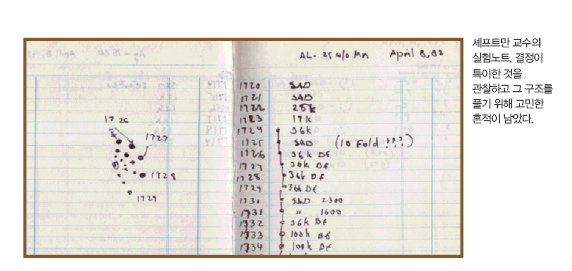 AL-25 w/o Mn April 8, 82
1720 SAD
1721 SAD
1722 25k
1723 17k
1724 36k
1725 SAD (10 Fold !!!)
1726 36k DF
1727 36k DF
1728 36k DF
1729 36k DF
1730 SAD 2300
1731 " 1600
1732 36k DF
1733 100k BF
1734 100k DF
1726
1727
1728
1729
셰프트만 교수의
실험노트. 결정이
특이한 것을
관찰하고 그 구조를
풀기 위해 고민한
흔적이 남았다.